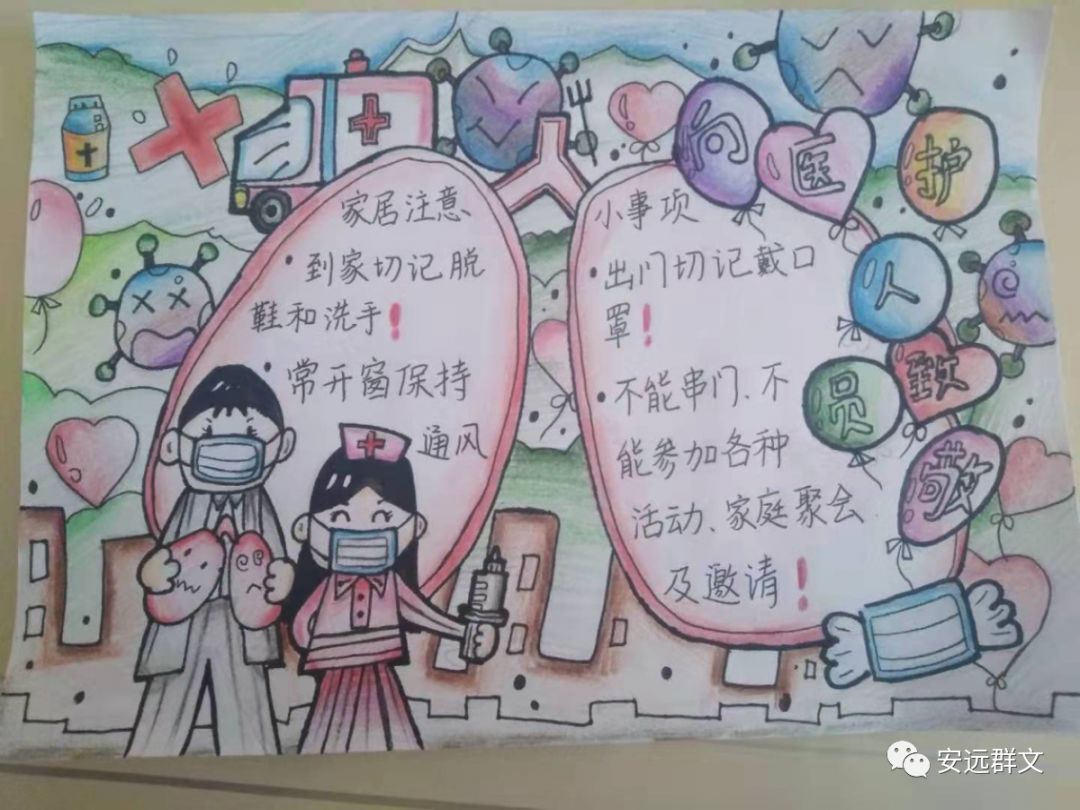 向医护人员致敬
家居注意
• 到家切记脱
鞋和洗手!
• 常开窗保持
通风
小事项
• 出门切记戴口
罩!
• 不能串门、不
能参加各种
活动、家庭聚会
及邀请!
安远群文